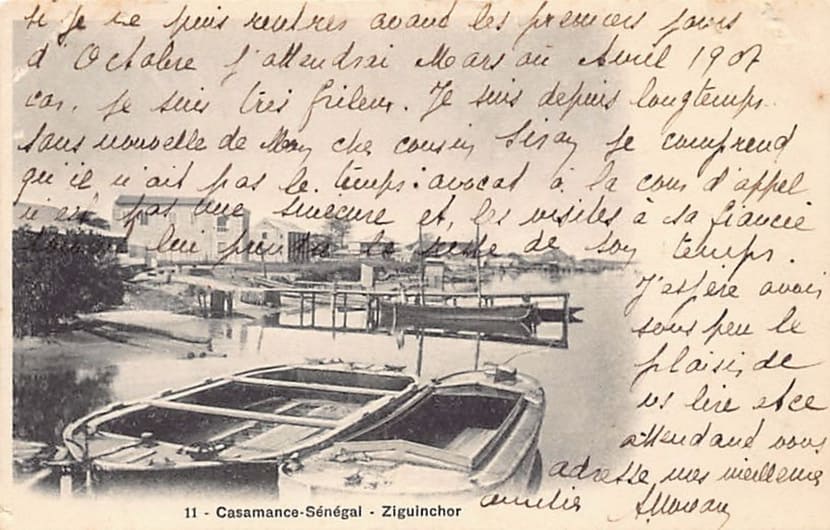 si je ne puis rentrer avant les premiers jours
d'Octobre j'attendrai Mars ou Avril 1907
car, je suis très frileux. Je suis depuis longtemps
sans nouvelle de Mon cher cousin je comprend
qu'il n'ait pas le temps: avocat à la cour d'appel
n'est pas une sinécure et, les visites à sa fiancée
lui prendre le reste de son temps.
J'espère avoir
sous peu le
plaisir de
vs lire et ce
attendant vous
adresse mes meilleures
amitiés
11 - Casamance-Sénégal - Ziguinchor